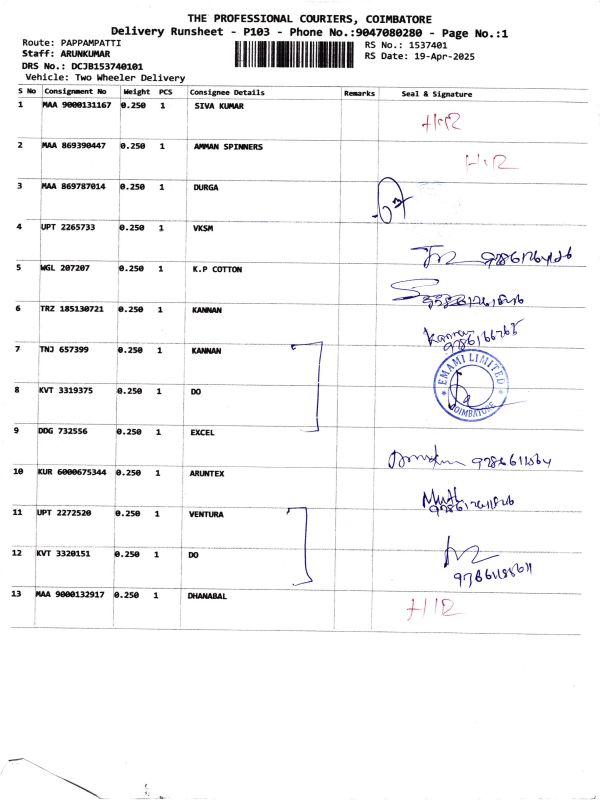 THE PROFESSIONAL COURIERS, COIMBATORE
Delivery Runsheet - P103 - Phone No.:9047080280 - Page No.:1
Route: PAPPAMPATTI
RS No.: 1537401
Staff: ARUNKUMAR
RS Date: 19-Apr-2025
DRS No.: DCJB153740101
Vehicle: Two Wheeler Delivery
S No Consignment No Weight PCS Consignee Details Remarks Seal & Signature
1 MAA 9000131167 0.250 1 SIVA KUMAR
2 MAA 869390447 0.250 1 AMMAN SPINNERS
3 MAA 869787014 0.250 1 DURGA
4 UPT 2265733 0.250 1 VKSM
5 WGL 207207 0.250 1 K.P COTTON
6 TRZ 185130721 0.250 1 KANNAN
7 TNJ 657399 0.250 1 KANNAN
8 KVT 3319375 0.250 1 DO
EMAMI LIMITED
COIMBATORE
9 DDG 732556 0.250 1 EXCEL
10 KUR 6000675344 0.250 1 ARUNTEX
11 UPT 2272520 0.250 1 VENTURA
12 KVT 3320151 0.250 1 DO
13 MAA 9000132917 0.250 1 DHANABAL